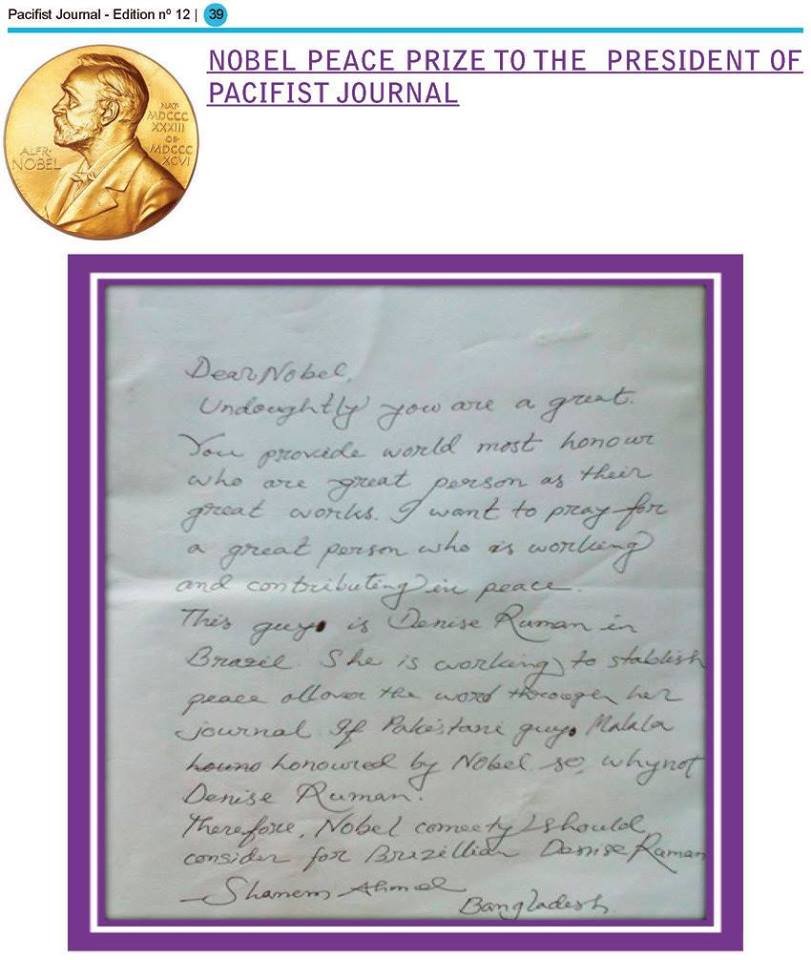 Pacifist Journal - Edition nº 12 | 39
NOBEL PEACE PRIZE TO THE PRESIDENT OF
PACIFIST JOURNAL
ALFR·
NOBEL
NAT·
MDCCC
XXXIII
OB·
MDCCC
XCVI
Dear Nobel,
Undoughtly you are a great.
You provide world most honour
who are great person as their
great works. I want to pray for
a great person who is working
and contributing in peace.
This guy is Denise Ruman in
Brazil. She is working to stablish
peace allover the word throogen her
journal If Pakistani guy Malala
honoured by Nobel so, why not
Denise Ruman.
Therefore, Nobel comeety should
consider for Brazillian Denise Ruman
- Shamem Ahmed
Bangladesh